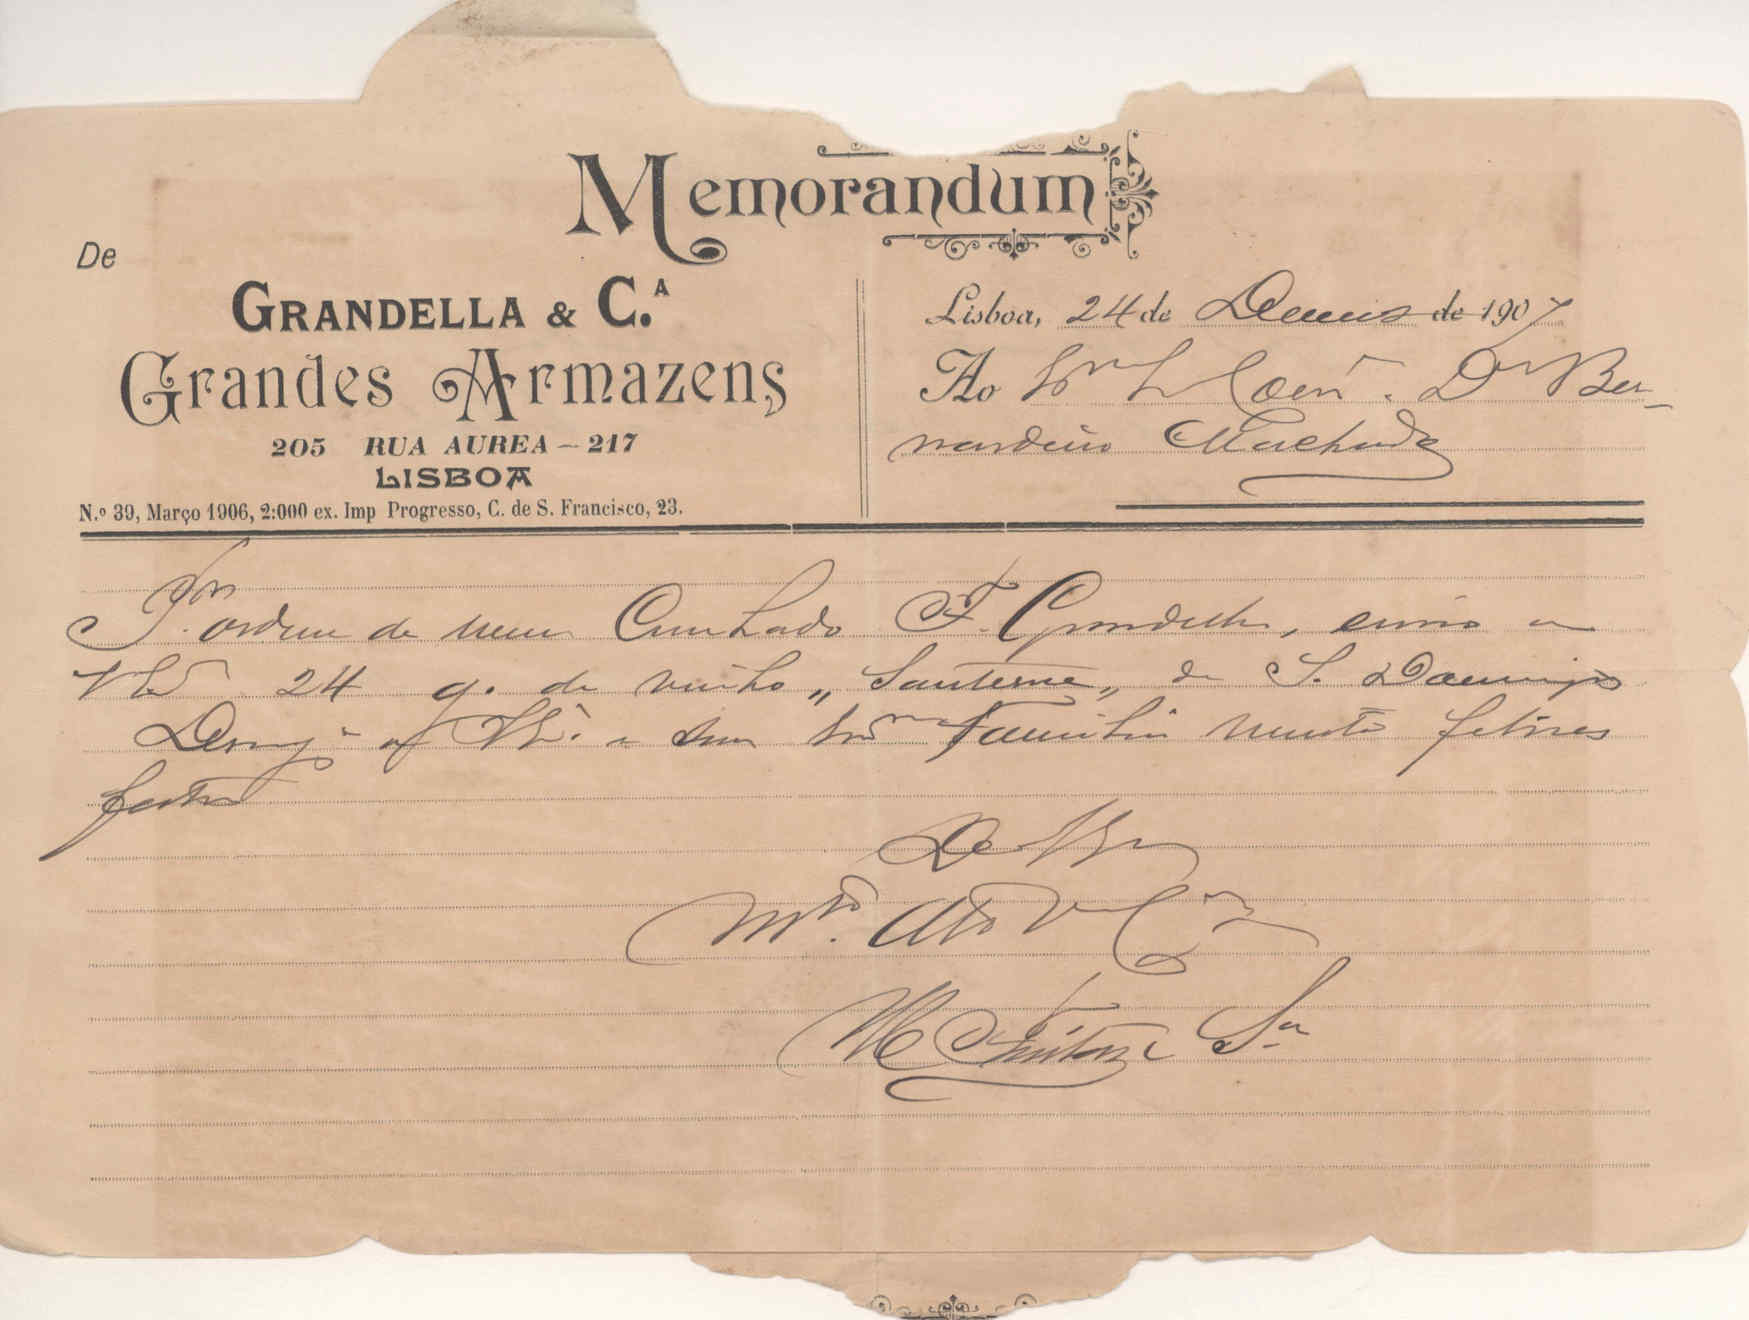 Memorandum
De
GRANDELLA & C.A
Grandes Armazens
205 RUA AUREA - 217
LISBOA
N.º 39, Março 1906, 2:000 ex. Imp Progresso, C. de S. Francisco, 23.
Lisboa, 24 de de 1907
Ao Dr Ber-
nardino Machado
Pr. ordem de meu Cunhado F. Grandella, envio a
24 g. de vinho „Sauterne„ de S. Domingos
a sua Familia muito felizes
festas
De
Mto. Ato